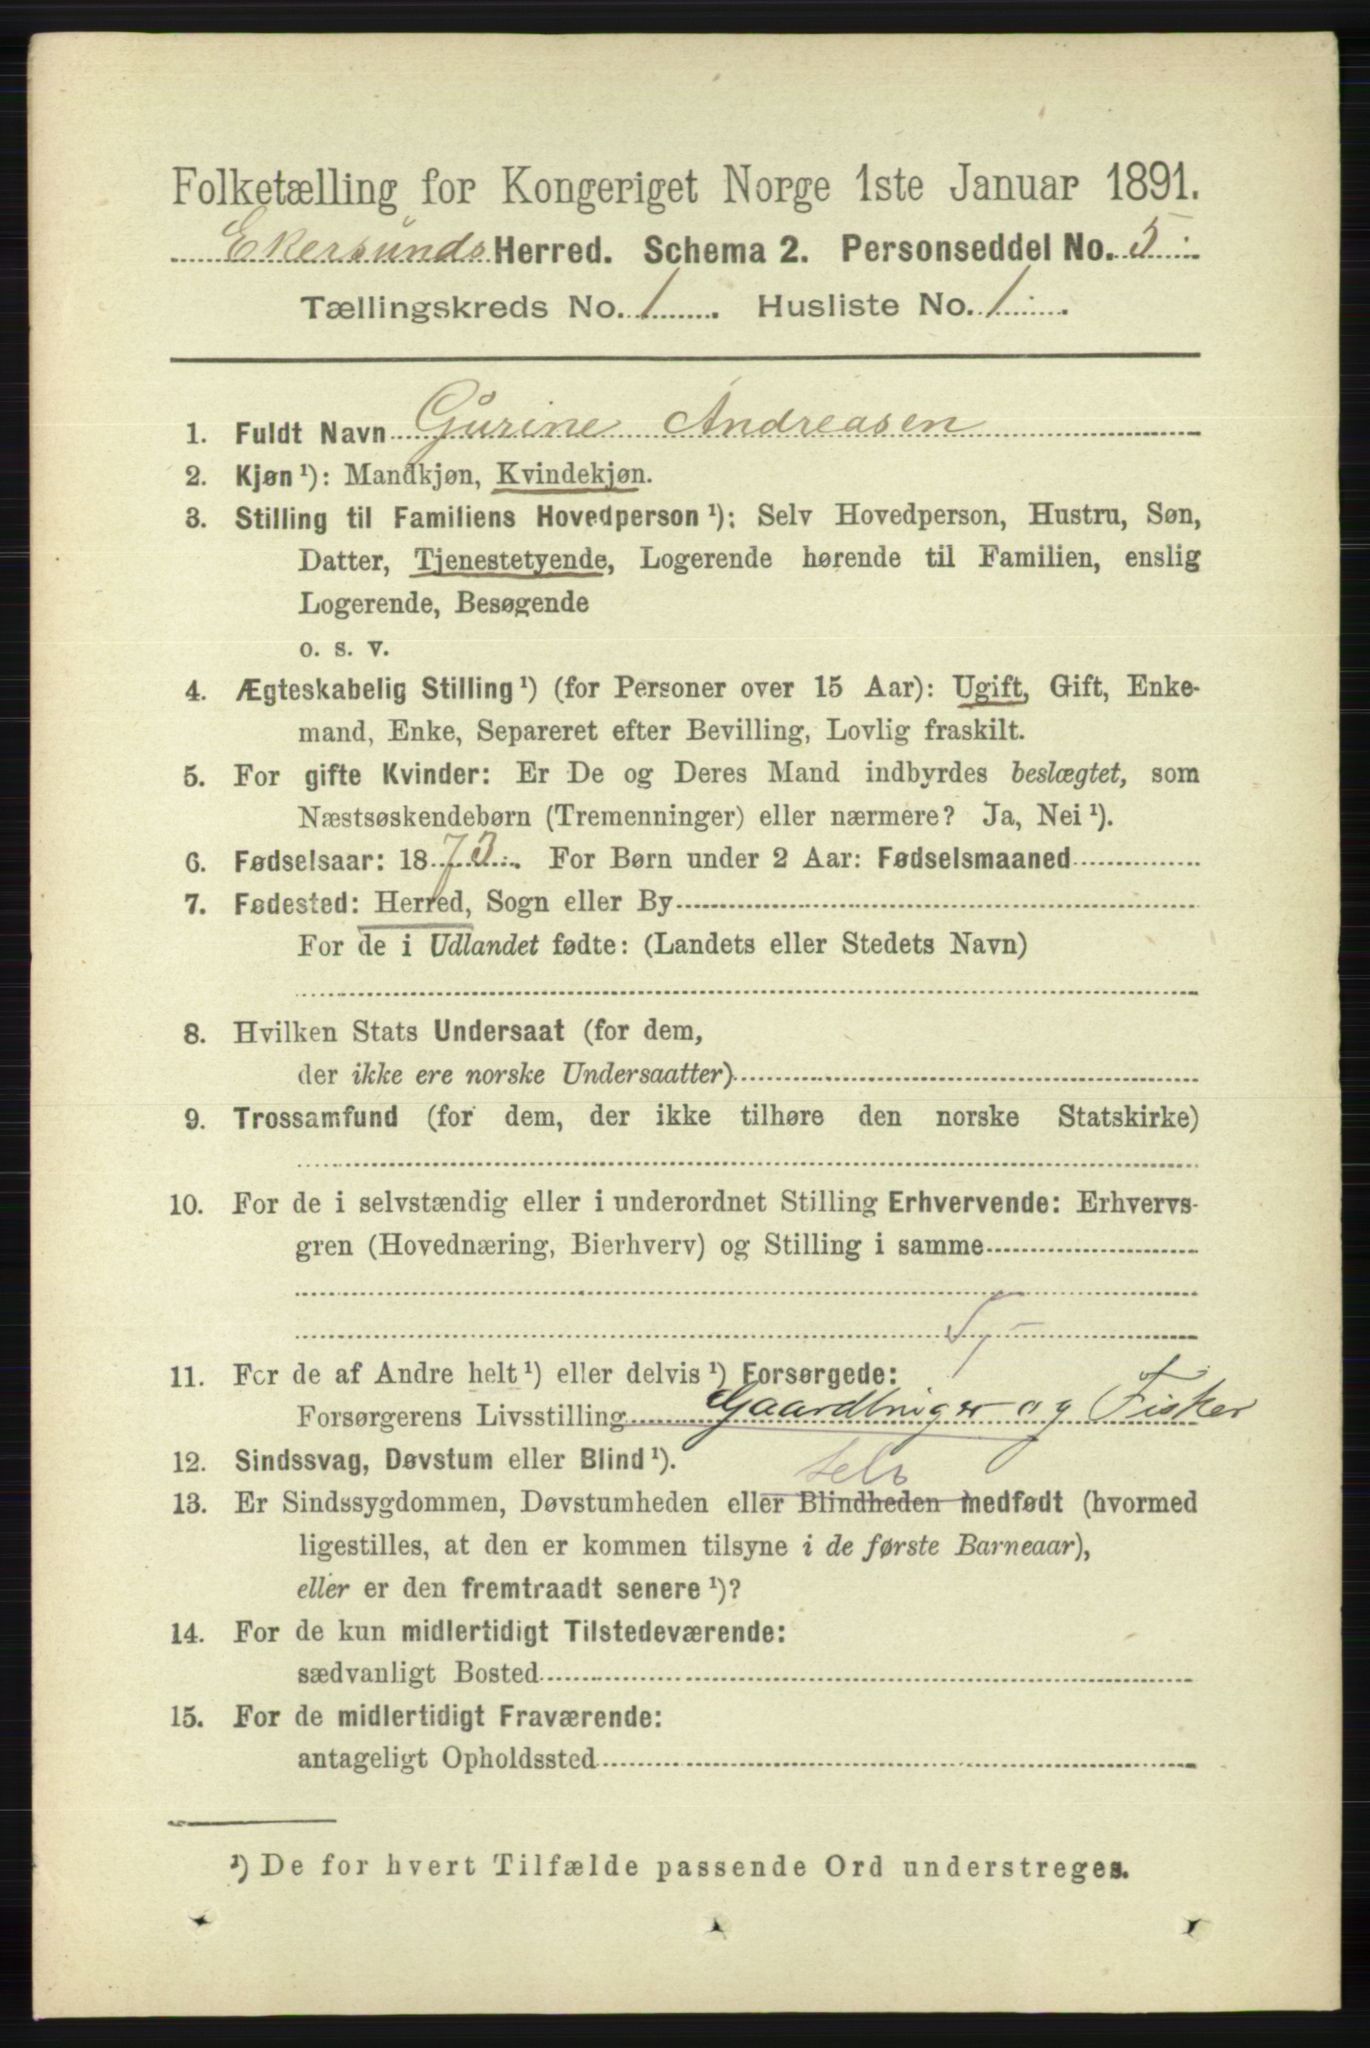 Folketælling for Kongeriget Norge 1ste Januar 1891.
Ekersunds Herred. Schema 2. Personseddel No. 5.
Tællingskreds No. 1. Husliste No. 1.
1. Fuldt Navn Gurine Andreasen
2. Kjøn ¹): Mandkjøn, Kvindekjøn.
3. Stilling til Familiens Hovedperson ¹): Selv Hovedperson, Hustru, Søn,
Datter, Tjenestetyende, Logerende hørende til Familien, enslig
Logerende, Besøgende
o. s. v.
4. Ægteskabelig Stilling ¹) (for Personer over 15 Aar): Ugift, Gift, Enke-
mand, Enke, Separeret efter Bevilling, Lovlig fraskilt.
5. For gifte Kvinder: Er De og Deres Mand indbyrdes beslægtet, som
Næstsøskendebørn (Tremenninger) eller nærmere? Ja, Nei ¹).
6. Fødselsaar: 1873. For Børn under 2 Aar: Fødselsmaaned
7. Fødested: Herred, Sogn eller By
For de i Udlandet fødte: (Landets eller Stedets Navn)
8. Hvilken Stats Undersaat (for dem,
der ikke ere norske Undersaatter)
9. Trossamfund (for dem, der ikke tilhøre den norske Statskirke)
10. For de i selvstændig eller i underordnet Stilling Erhvervende: Erhvervs-
gren (Hovednæring, Bierhverv) og Stilling i samme
Tj
11. For de af Andre helt ¹) eller delvis ¹) Forsørgede:
Forsørgerens Livsstilling Gaardbruger og Fisker
12. Sindssvag, Døvstum eller Blind ¹).
selv
13. Er Sindssygdommen, Døvstumheden eller Blindheden medfødt (hvormed
ligestilles, at den er kommen tilsyne i de første Barneaar),
eller er den fremtraadt senere ¹)?
14. For de kun midlertidigt Tilstedeværende:
sædvanligt Bosted
15. For de midlertidigt Fraværende:
antageligt Opholdssted
¹) De for hvert Tilfælde passende Ord understreges.